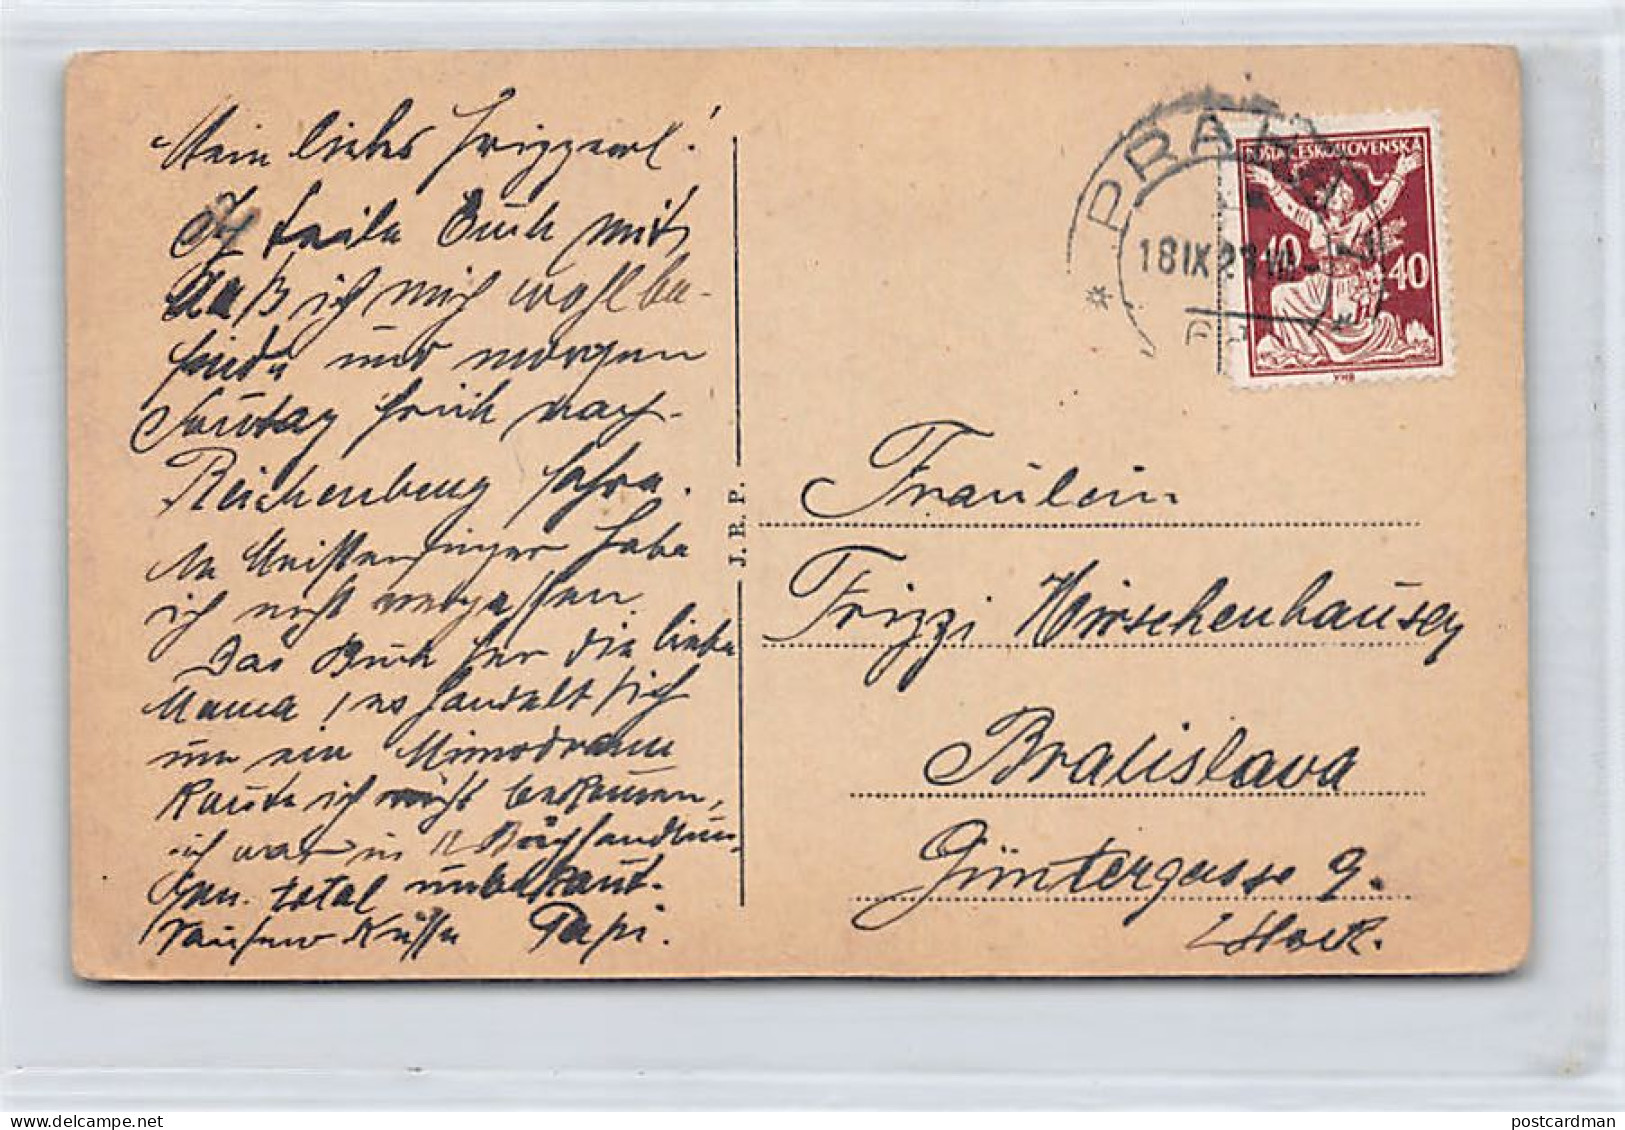 Mein liebes Frizzerl!
Ich teile Euch mit,
daß ich mich wohlbe-
finde und morgen
Sonntag früh nach
Reichenberg fahre.
Meistersinger habe
ich nicht vergessen.
Das Buch für die liebe
Mama, es handelt sich
um ein Mimodram
konnte ich nicht bekommen,
ich war in 11 Buchhandlun-
gen total unbekannt.
Tausend Küsse Papi.
J. B. P.
PRAHA
18 IX 2
POSTA ČESKOSLOVENSKÁ
40 40
Fräulein
Frizzi Hirschenhauser
Bratislava
Güntergasse 9.
I Stock.
postcardman